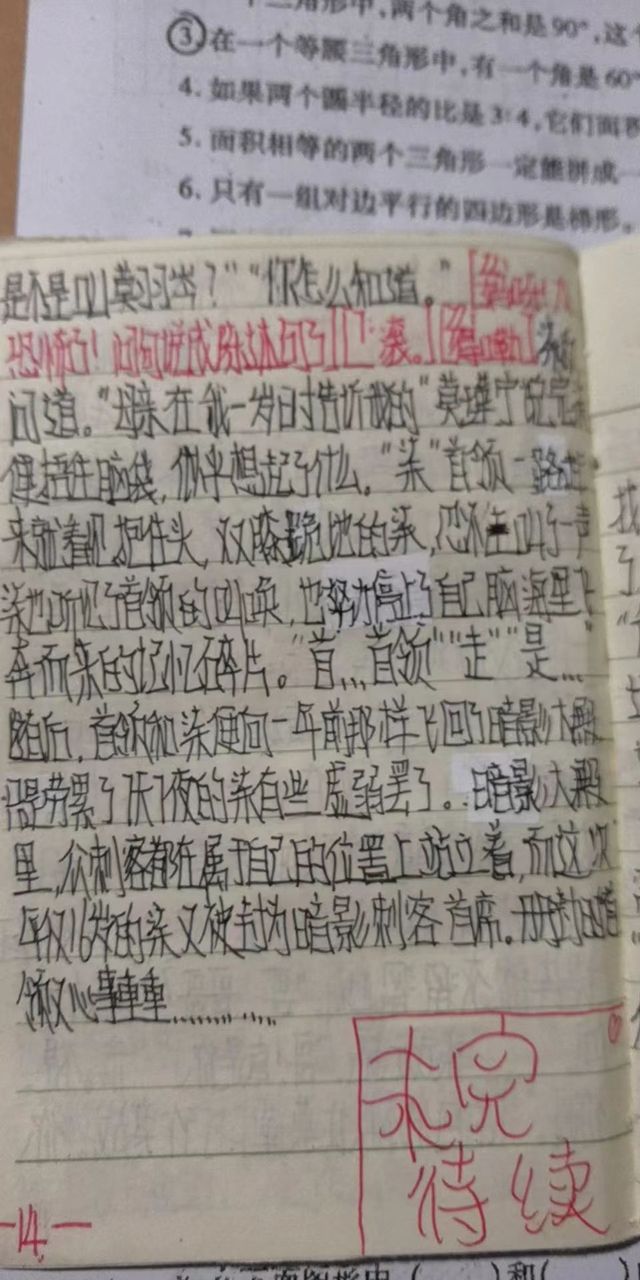 三角形中,两个角之和是90°,这个
③在一个等腰三角形中,有一个角是60°
4. 如果两个圆半径的比是3:4,它们面积
5. 面积相等的两个三角形一定能拼成一
6. 只有一组对边平行的四边形是梯形。
是不是叫莫羽岑?”“你怎么知道。”
恐怖了!问句
问道。“母亲在我一岁时告诉我的”莫瑾宁说完
便捂住脑袋,似乎想起了什么。“柒”首领一路赶
来就看见抱住头,双膝跪地的柒,忍不住叫了一声
柒也听见了首领的叫唤,也努力停止了自己脑海里飞
奔而来的记忆碎片。“首...首领”“走”“是...”
随后,首领和柒便向一年前那样飞回了暗影大殿
只是劳累了一天一夜的柒有些虚弱罢了。..暗影大殿
里,众刺客都在属于自己的位置上站立着,而这次
年仅16岁的柒又被封为暗影刺客首席。册封时首
领又心事重重............
未完
待续
-14-